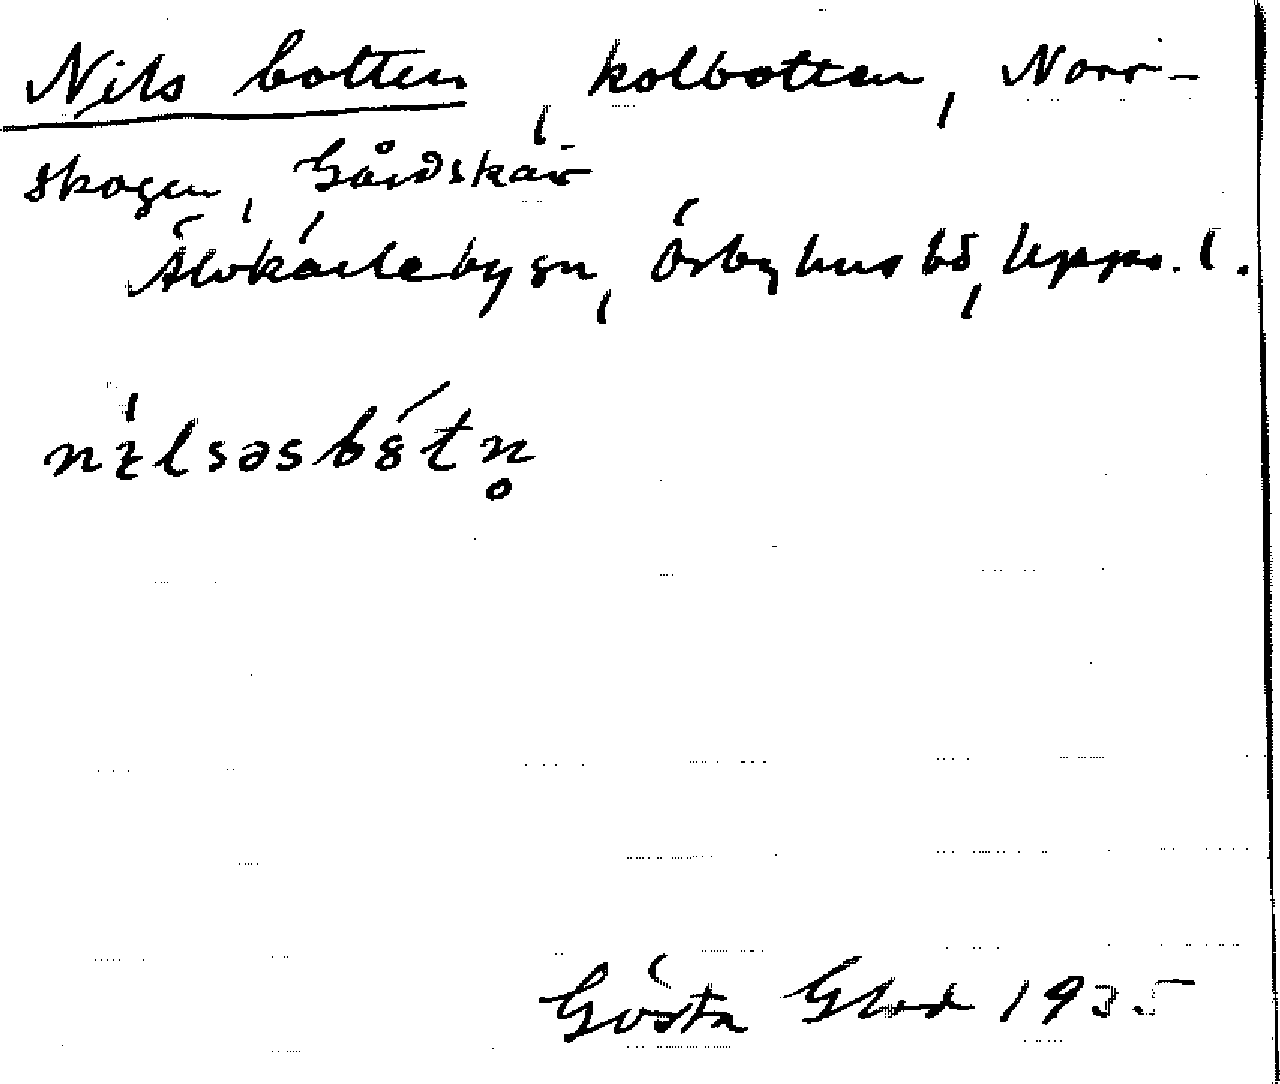 Nils botten, kolbotten, Norr-
skogen, Gårdskär
Älvkarleby sn, Örbyhus hd, Upps. l.
nı̨́lsəsbȣ́tn̥
Gösta Glad 1935